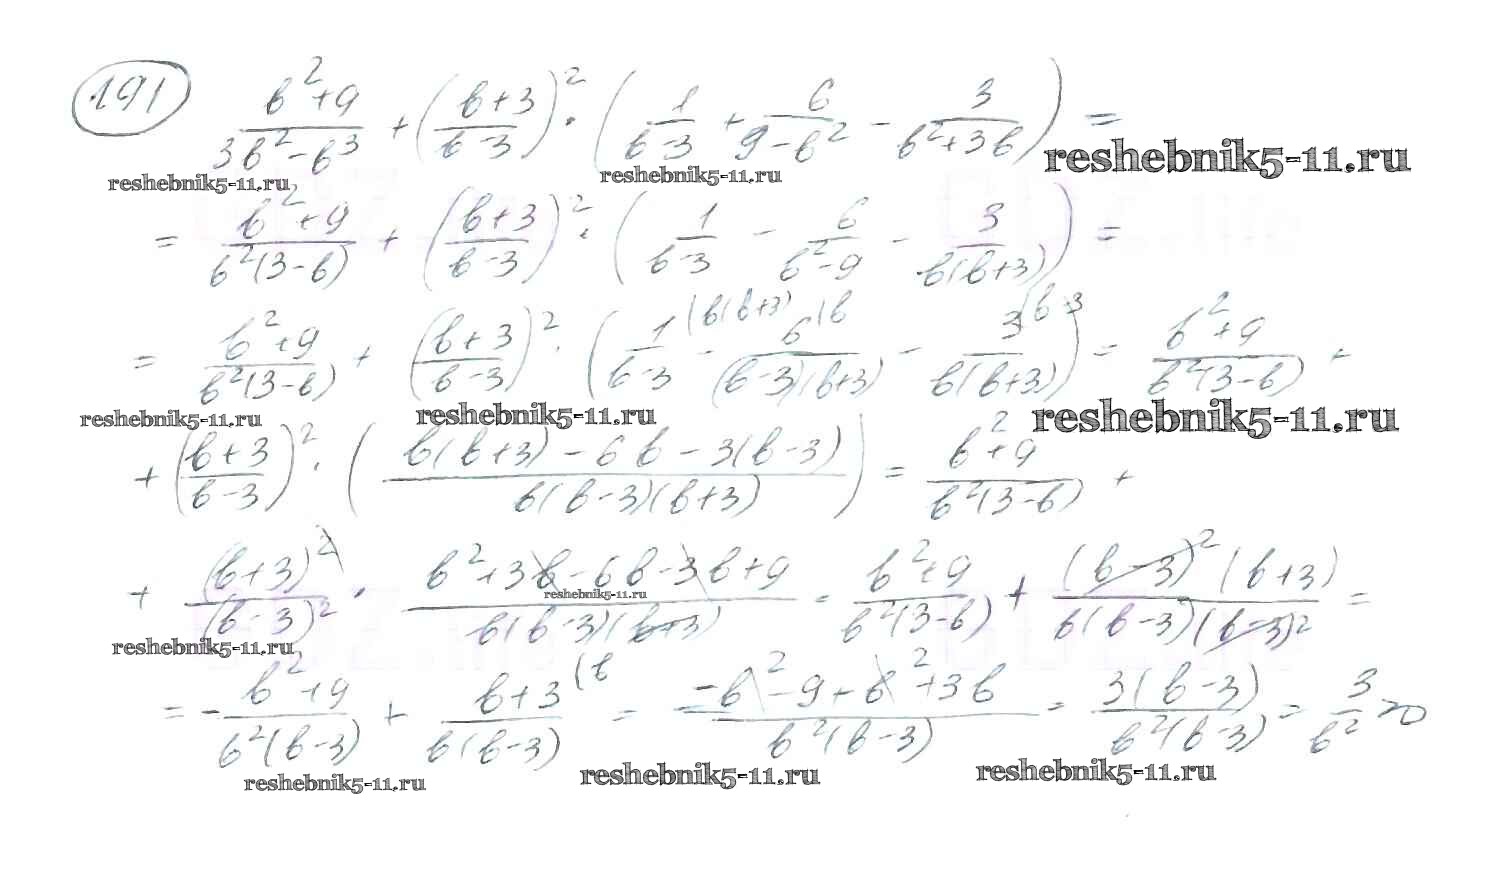 191 \frac{b^2+9}{3b^2-b^3} + \left(\frac{b+3}{b-3}\right)^2 \cdot \left(\frac{1}{b-3} + \frac{6}{9-b^2} - \frac{3}{b^2+3b}\right) =
reshebnik5-11.ru reshebnik5-11.ru reshebnik5-11.ru
= \frac{b^2+9}{b^2(3-b)} + \left(\frac{b+3}{b-3}\right)^2 \cdot \left(\frac{1}{b-3} - \frac{6}{b^2-9} - \frac{3}{b(b+3)}\right) =
= \frac{b^2+9}{b^2(3-b)} + \left(\frac{b+3}{b-3}\right)^2 \cdot \left(\frac{1^{(b(b+3)}}{b-3} - \frac{6^{(b}}{(b-3)(b+3)} - \frac{3^{(b-3}}{b(b+3)}\right) = \frac{b^2+9}{b^2(3-b)} +
reshebnik5-11.ru reshebnik5-11.ru reshebnik5-11.ru
+ \left(\frac{b+3}{b-3}\right)^2 \cdot \left(\frac{b(b+3)-6b-3(b-3)}{b(b-3)(b+3)}\right) = \frac{b^2+9}{b^2(3-b)} +
+ \frac{(b+3)^2}{(b-3)^2} \cdot \frac{b^2+3b-6b-3b+9}{b(b-3)(b+3)} = \frac{b^2+9}{b^2(3-b)} + \frac{(b-3)^2(b+3)}{b(b-3)(b-3)^2} =
reshebnik5-11.ru
reshebnik5-11.ru
= -\frac{b^2+9}{b^2(b-3)} + \frac{b+3^{(b}}{b(b-3)} = \frac{-b^2-9+b^2+3b}{b^2(b-3)} = \frac{3(b-3)}{b^2(b-3)} = \frac{3}{b^2} > 0
reshebnik5-11.ru reshebnik5-11.ru reshebnik5-11.ru